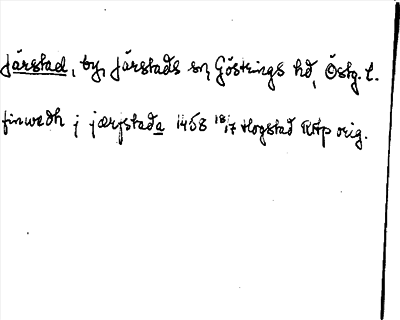 Järstad, by, Järstads sn, Göstrings hd, Östg. l.
finwedh j jærjstada 1458 18/7 Hogstad RAp orig.